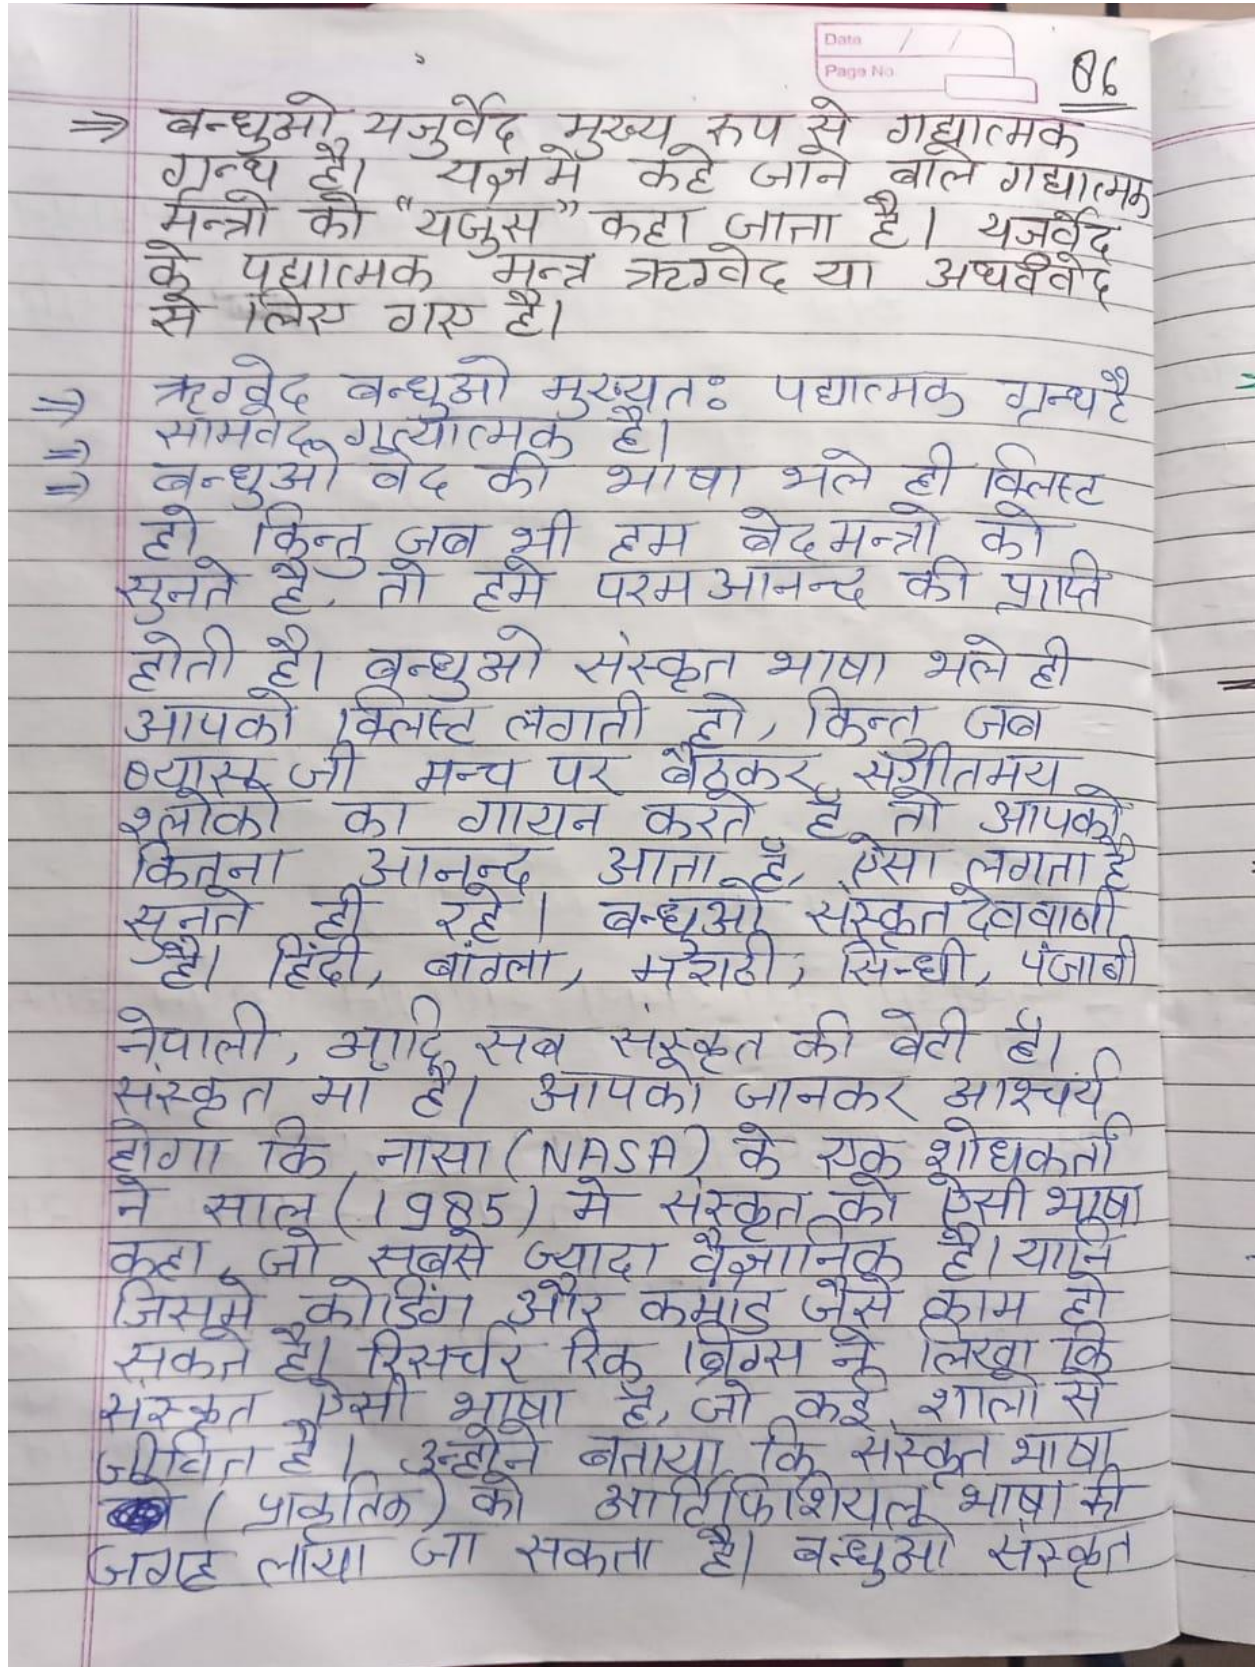 Date / /
Page No.
06
⇒ बन्धुओ यजुर्वेद मुख्य रूप से गद्यात्मक
ग्रन्थ है। यज्ञ मे कहे जाने वाले गद्यात्मक
मन्त्रो को "यजुस" कहा जाता है। यजर्वेद
के पद्यात्मक मन्त्र ऋग्वेद या अथर्ववेद
से लिए गए है।
⇒ ऋग्वेद बन्धुओ मुख्यतः पद्यात्मक ग्रन्थ है
⇒ सामवेद गत्यात्मक है।
⇒ बन्धुओ वेद की भाषा भले ही क्लिस्ट
हो किन्तु जब भी हम वेदमन्त्रो को
सुनते है, तो हमे परम आनन्द की प्राप्ति
होती है। बन्धुओ संस्कृत भाषा भले ही
आपको क्लिस्ट लगती हो, किन्तु जब
व्यास जी मन्च पर बैठकर संगीतमय
श्लोको का गायन करते है तो आपको
कितना आनन्द आता है, ऐसा लगता है
सुनते ही रहे। बन्धुओ संस्कृत देववाणी
है। हिंदी, बांग्ला, मराठी, सिन्धी, पंजाबी
नेपाली, आदि सब संस्कृत की बेटी है।
संस्कृत मा है। आपको जानकर आश्चर्य
होगा कि नासा (NASA) के एक शोधकर्ता
ने साल (1985) मे संस्कृत को ऐसी भाषा
कहा, जो सबसे ज्यादा वैज्ञानिक है। यानि
जिसमे कोडिंग और कमांड जैसे काम हो
सकते है। रिसर्चर रिक ब्रिग्स ने लिखा कि
संस्कृत ऐसी भाषा है, जो कई शालो से
जीवित है। उन्होने बताया कि संस्कृत भाषा
(प्राकृतिक) को आर्टिफिशियल भाषा की
जगह लाया जा सकता है। बन्धुओ संस्कृत